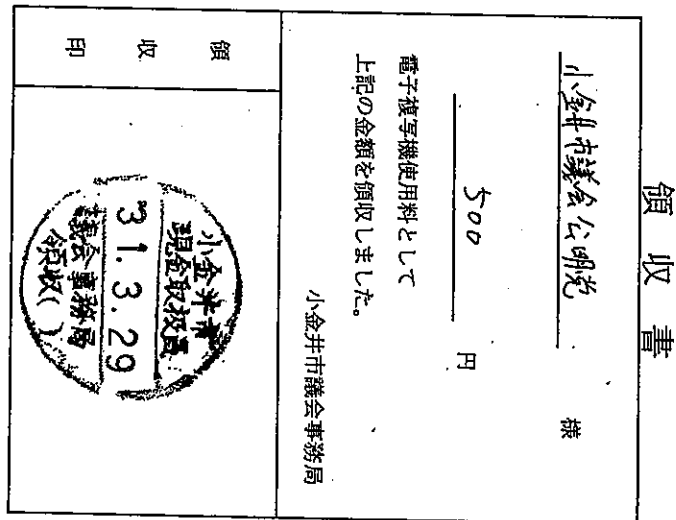 領収書
小金井市議会公明党 様
500 円
電子複写機使用料として
上記の金額を領収しました。
小金井市議会事務局
領収印
小金井市
現金取扱員
31.3.29
議会事務局
領収( )